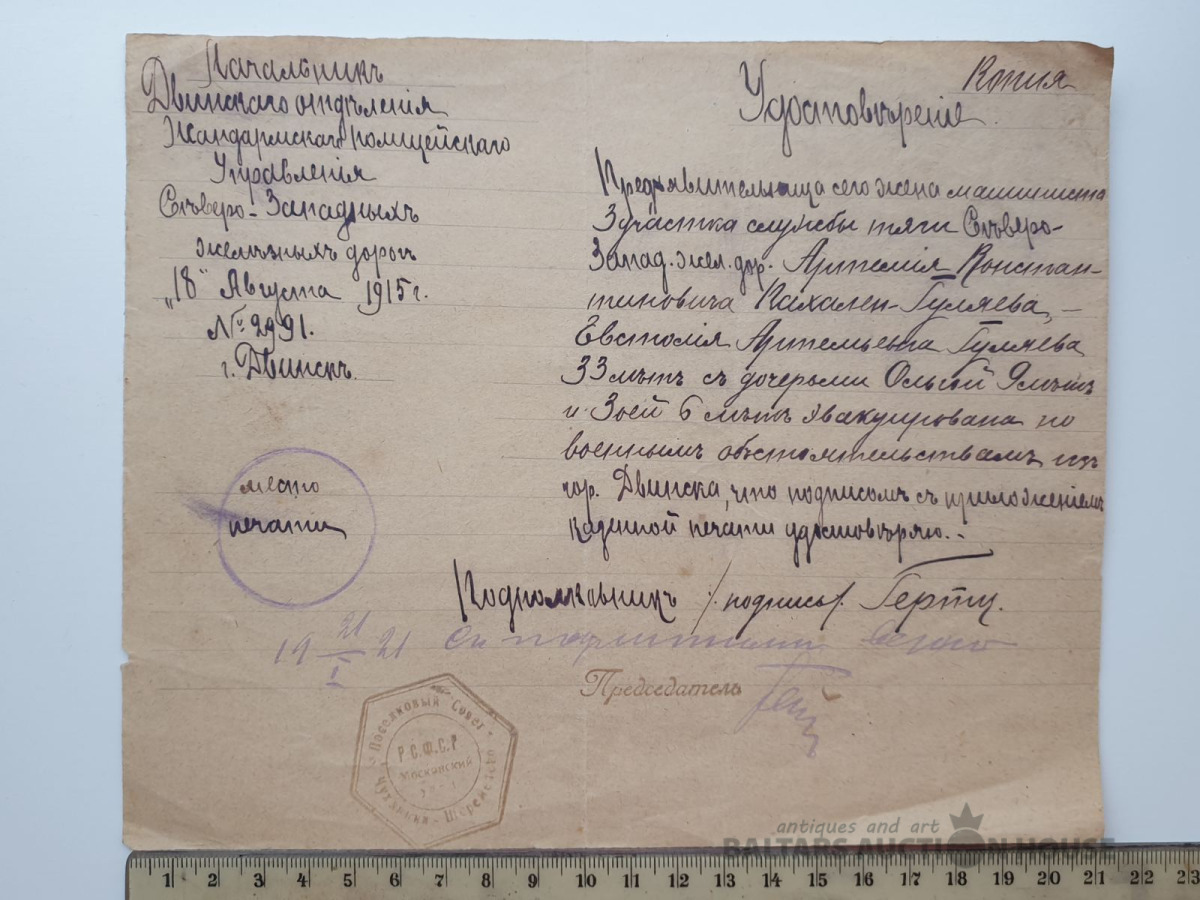 Начальникъ
Двинскаго отдѣленія
Жандармскаго полицейскаго
Управленія
Сѣверо-Западныхъ
желѣзныхъ дорогъ
"18" Августа 1915 г.
№ 2991.
г. Двинскъ.
место
печати
Копия
Удостовѣрение.
Предъявительница сего жена машиниста
3 участка службы тяги Сѣверо-
Запад. жел. дор. Артемія Констан-
тиновича Кахален-Гуляева, -
Евстолія Артемьевна Гуляева
33 лѣтъ съ дочерьми Ольгой 9 лѣтъ
и Зоей 6 лѣтъ эвакуирована по
военнымъ обстоятельствамъ изъ
гор. Двинска, что подписомъ съ приложеніемъ
казенной печати удостовѣряю. -
Подполковникъ /подпись/. Гертц.
19 21/I 21 верно
Председатель
Поселковый Совет
Р.С.Ф.С.Р
Московский
antiques and art
BALTARS AUCTION HOUSE
1 2 3 4 5 6 7 8 9 10 11 12 13 14 15 16 17 18 19 20 21 22 23